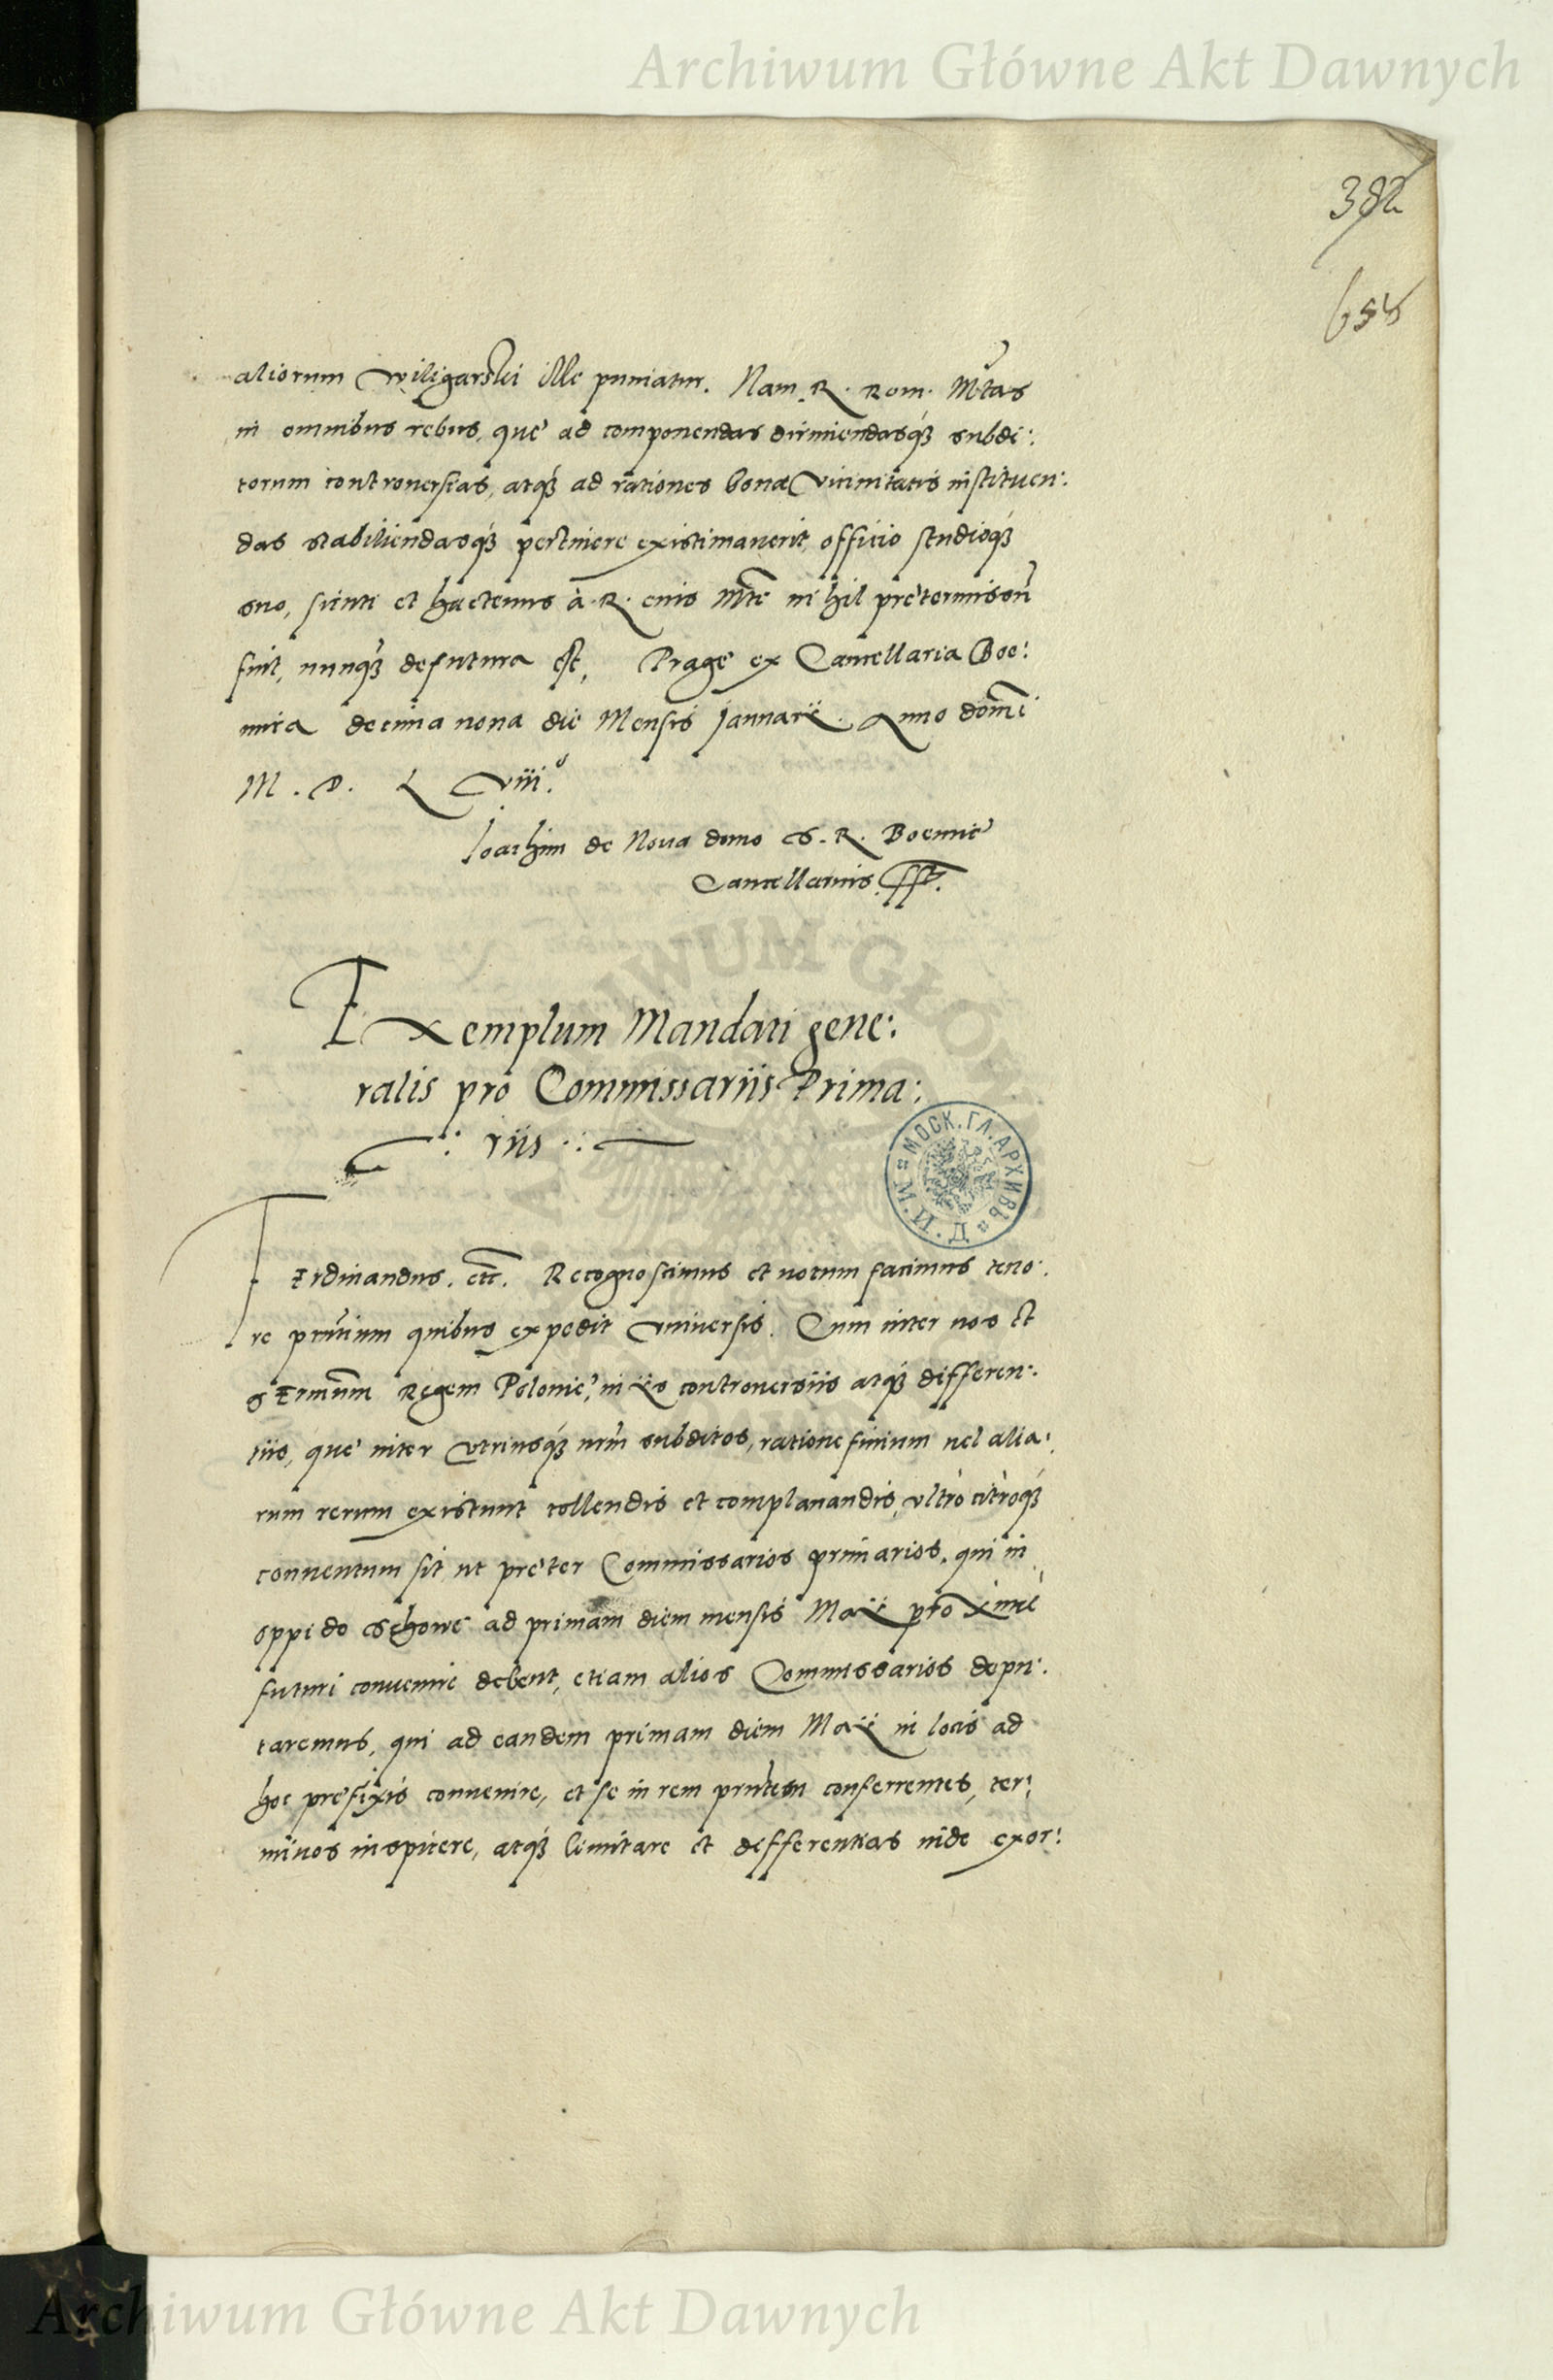 Archiwum Główne Akt Dawnych
382
658
aliorum Wiligarski ille puniatur. Nam R. Rom. Mtas
in omnibus rebus, que ad componendas dirimiendasq́ȝ subdi:
torum controuersias, atq́ȝ ad rationes bonæ vicinitatis instituen:
das stabiliendasq́ȝ pertinere existimauerit, officio studioq́ȝ
suo, sicuti et hactenus à R. eius Mte nihil pretermissũ
fuit, nunq̃ȝ defutura est, Prage ex Cancellaria Boe:
mica decima nona die Mensis Januarii. Anno domĩ
M. D. L Viii.º
Joachim de Noua domo S. R. Boemie
Cancellarius. sspt.
Exemplum Mandati gene:
ralis pro Commissariis Prima:
riis
MOCK. ГЛ. АРХИВЪ
М. И. Д.
FErdinandus. etc. Recognoscimus et notum facimus teno:
re pñtium quibus expedit vniuersis. Cum inter nos et
SErmũm Regem Polonie, in iis controuersiis atq́ȝ differen:
tiis, que inter vtriusq́ȝ nrm̃ subditos, ratione finium uel alia:
rum rerum existunt tollendis et complanandis, vltrò citròq́ȝ
conuentum sit, ut preter Commissarios primarios, qui in
oppido Schowe ad primam diem mensis Maii proxime
futuri conuenire debent, etiam alios Commissarios depu:
taremus, qui ad eandem primam diem Maii in locis ad
hoc prefixis conuenire, et se in rem pñtem conferrentes, ter:
minos inspicere, atq́ȝ limitare et differentias inde exor:
Archiwum Główne Akt Dawnych